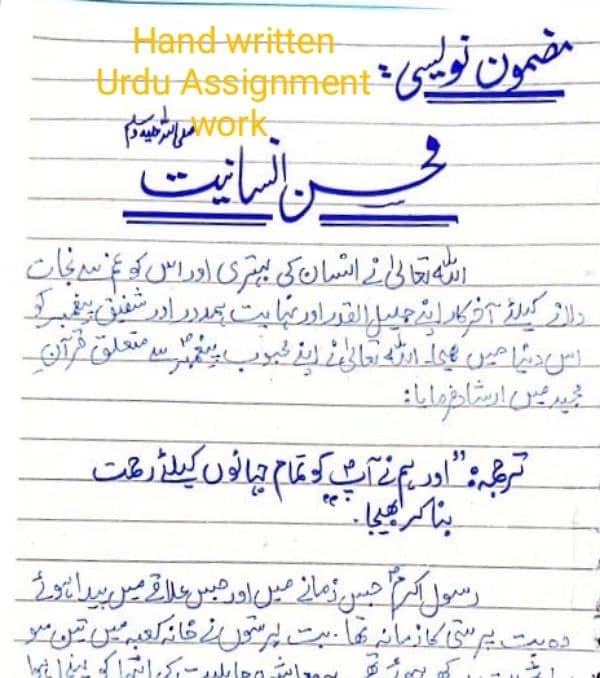 Hand written
Urdu Assignment
work
مضمون نویسی:
صلی اللہ علیہ وسلم
محسن انسانیت
اللہ تعالیٰ نے انسان کی بہتری اور اس کو غم سے نجات
دلانے کیلئے آخر کار اپنے جلیل القدر اور نہایت ہمدرد اور شفیق پیغمبر کو
اس دنیا میں بھیجا۔ اللہ تعالیٰ نے اپنے محبوب پیغمبرؐ سے متعلق قرآنِ
مجید میں ارشاد فرمایا:
ترجمہ: "اور ہم نے آپؐ کو تمام جہانوں کیلئے رحمت
بنا کر بھیجا۔"
رسول اکرمؐ جس زمانے میں اور جس علاقے میں پیدا ہوئے
وہ بت پرستی کا زمانہ تھا۔ بت پرستوں نے خانہ کعبہ میں تین سو